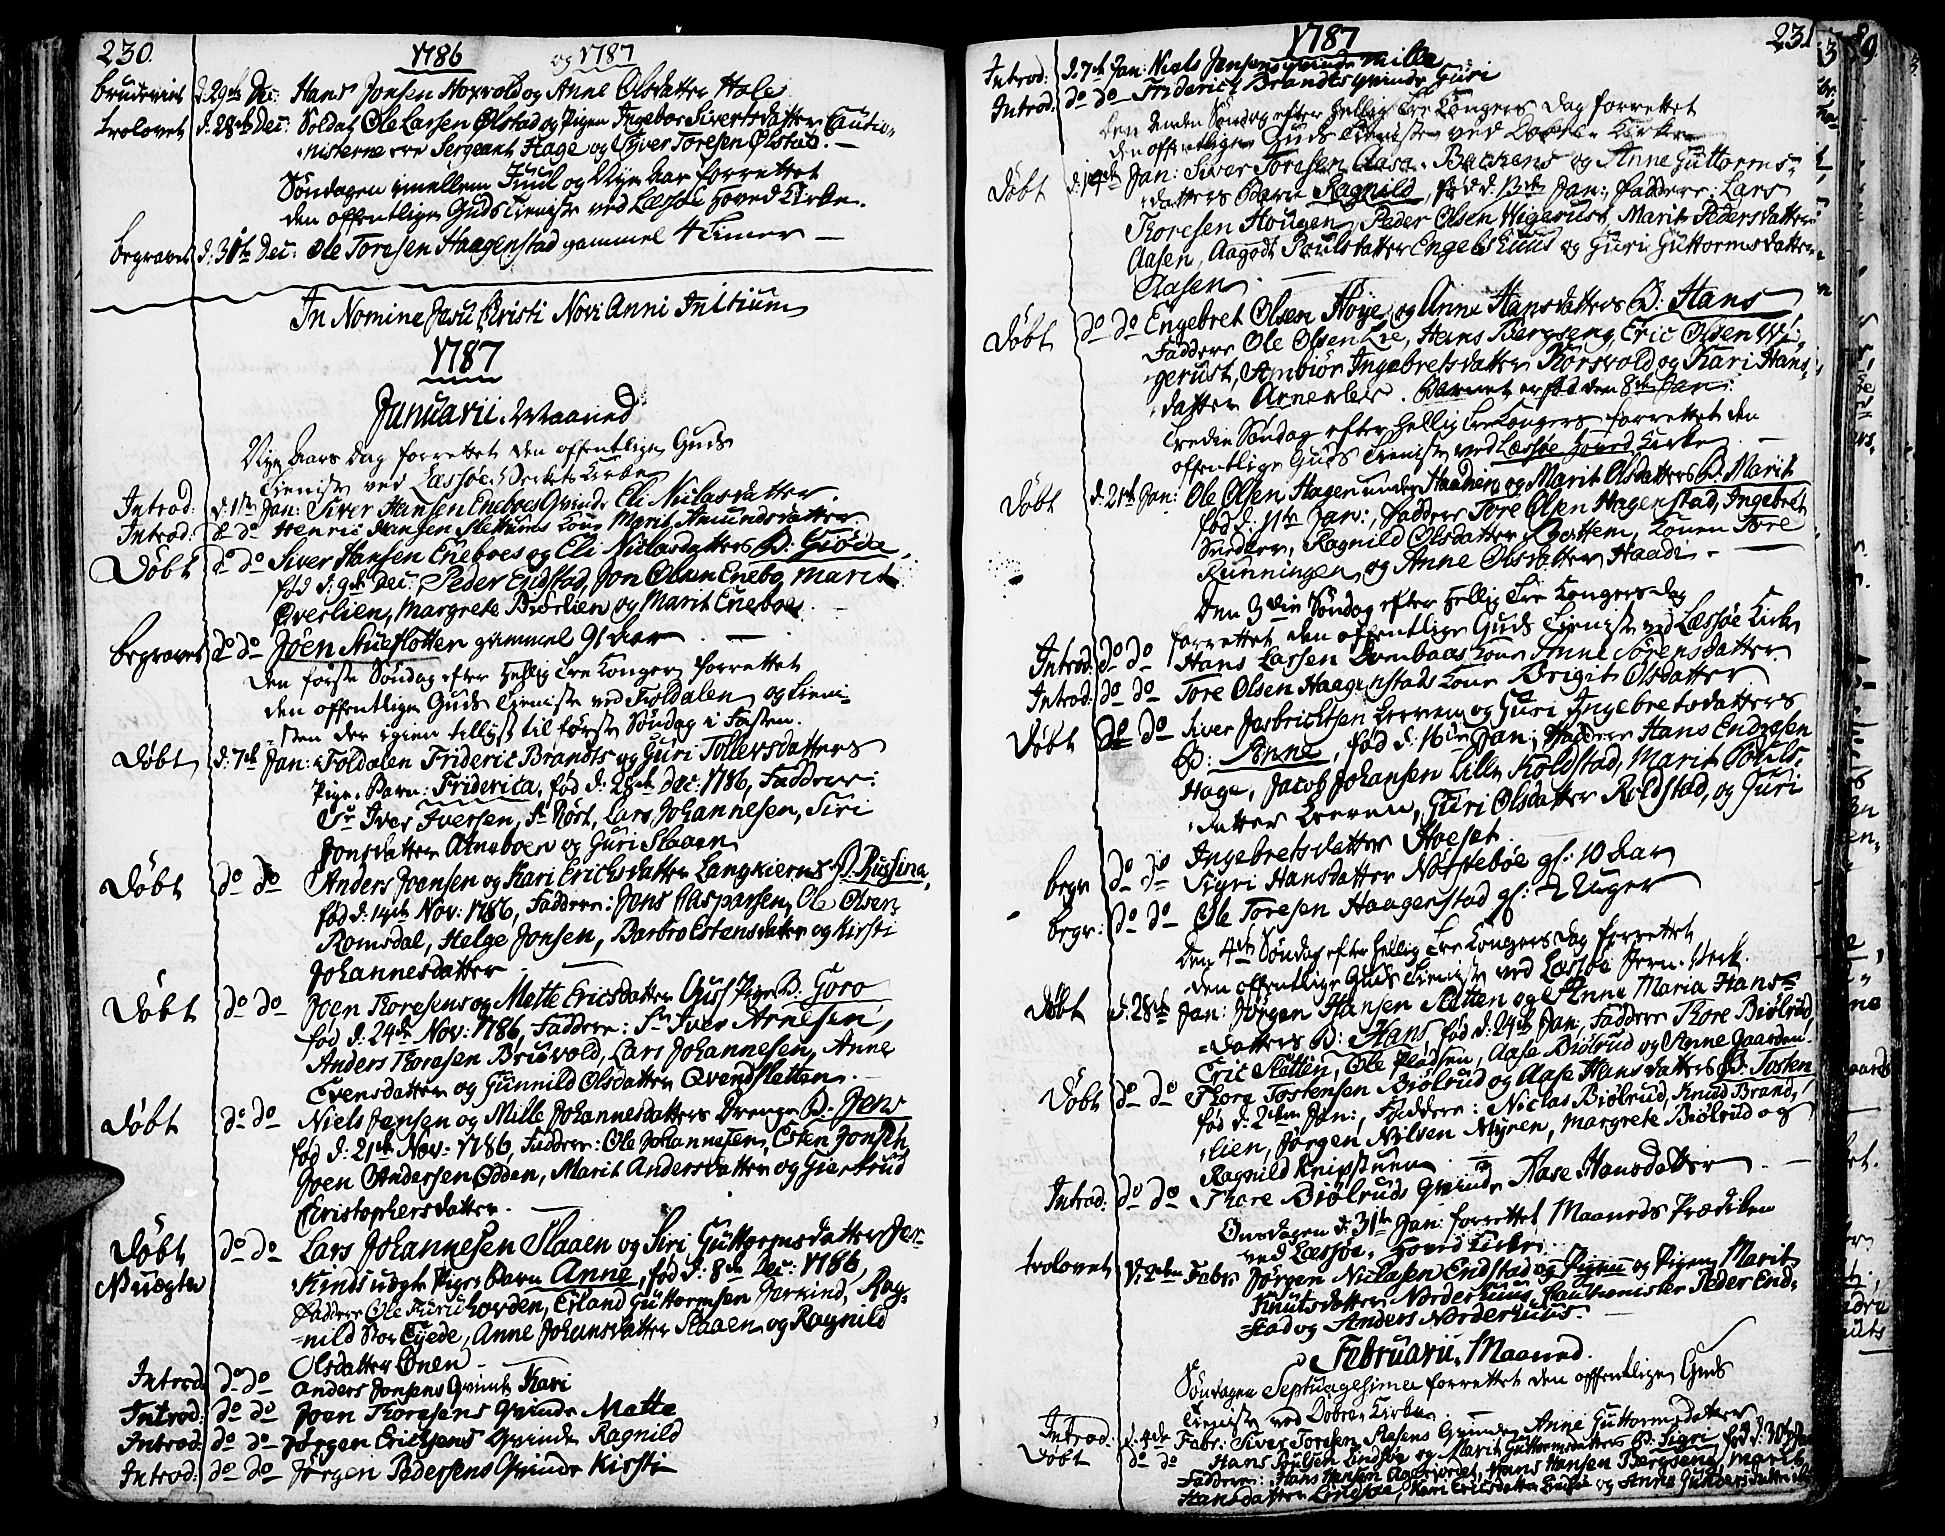 230.
1786
og 1787
brudeviet d: 29de Dec: Hans Jonsen Horvold og Anne Olsdatter Hole
trolovet d: 28de Dec: Soldat Ole Larsen Ølstad og Pigen Ingebor Sivertsdatter Cautio-
-nisterne ere Sergeant Hage og Siver Toresen Ølstad. —
Søndagen imellem Juul og Nye Aar forrettet
den offentlige Guds Tieniste ved Læssøe Hoved Kirke.
begravet d: 31te Dec: Ole Toresen Haagenstad gammel 4 Timer —
In Nomine Jesu Christi Novi Anni Initium
1787
Januarii Maaned
Nye Aars Dag forrettet den offentlige Guds
Tieniste ved Læssøe Verks Kirke
Introd: d: 1te Jan: Siver Hansen Eneboes Qvinde Eli Niclasdatter.
Introd: do do Henric Hansen Slettums Kone Marit Amundsdatter.
Døbt do do Siver Hansen Eneboes og Eli Niclasdatters B: Giøda,
fød d: 9de Dec: Peder Endstad, Jon Olsen Enebo, Marit
Øverlien, Margrete Biørlien og Marit Eneboe. —
begravet do do Joen Nuesflotten gammel 91 Aar. —
Den første Søndag efter Hellig Tre Konger forrettet
den offentlige Guds Tieniste ved Foldalen og Tieni-
-sten der igien tillyst til første Søndag i Fasten.
Døbt d: 7de Jan: Foldalen Frideric Brandts og Guri Tollevsdatters
Pige-Barn: Friderica, fød d: 28de Dec: 1786, Faddere:
Sr Iver Iversen, Sr Røst, Lars Johannesen, Siri
Jonsdatter Atneboen og Guri Slaaen
Døbt do do Anders Joensen og Kari Erichsdatter Langkiernes B. Russina,
fød d: 14de Nov: 1786, Faddere: Jens Caspersen, Ole Olsen
Romsdal, Helge Jonsen, Barbro Estensdatter og Kirsti
Johannesdatter —
Døbt do do Joen Thoresens og Mette Ericsdatter Pige B. Goro
fød d: 24de Nov: 1786, Faddere: Sr Iver Arnesen,
Anders Thoresen Brusvold, Lars Johannesen, Anne
Svensdatter og Gunnild Olsdatter Qvendsletten.
Døbt do do Niels Jensen og Mille Johannesdatters Drenge B. Jens
fød d: 21de Nov: 1786, Faddere: Ole Johannesen, Esten Jonsen,
Joen Andersen Odden, Marit Andersdatter og Giertrud
Christophersdatter.
Døbt do do Lars Johannesen Slaaen og Siri Guttormsdatter Jer-
Nuægte -kinds uægte Pige Barn Anne, fød d: 8de Dec: 1786,
Faddere Ole Hovden, Erland Guttormsen Jerkind, Rag-
-nild Stor Eyede, Anne Johansdatter Slaaen og Ragnild
Olsdatter Lønen —
Introd. do do Anders Jonsens Qvinde Kari
Introd: do do Joen Thoresens Qvinde Mette
Introd: do do Jørgen Ericksens Qvinde Ragnild
Introd: do do Jørgen Pedersens Qvinde Kirsti
1787
231
Introd: d: 7de Jan: Niels Jensens Qvinde Mille
Introd: do do Friderich Brandts Qvinde Guri
Den Anden Søndag efter Hellig Tre Kongers Dag forrettet
den offentlige Guds Tieniste ved Dovre Kirke
Døbt d: 14de Jan: Siver Toresen Aasa-Backens og Anne Guttorms-
-datters Barn Ragnild, fød d: 13de Jan: Faddere: Lars
Thoresen Hougen, Peder Olsen Wigerust, Marit Pedersdatter
Aasen, Aagodt Poulsdatter Engelshuus og Guri Guttormsdatter
Aasen.
Døbt do do Engebret Olsen Høye og Anne Hansdatters B: Hans
Faddere Ole Olsen Lie, Hans Bergseng, Eric Olsen Wi-
-gerust, Ambiør Ingebretsdatter Korsvold og Kari Hans-
-datter Arnekleiv. Barnet er fød den 8de Jan:
Tredie Søndag efter Hellig Tre Kongers forrettet den
offentlige Guds Tieniste ved Læssøe Hoved Kirke —
Døbt d: 21de Jan: Ole Olsen Hagen under Haahen og Marit Olsdatters B. Marit
fød d: 11te Jan:, Faddere Tore Olsen Hagenstad, Ingebret
Ragnild Olsdatter Kiottem, Konen Tore
Runningen og Anne Olsdatter Haade. —
Den 3die Søndag efter Hellig Tre Kongers Dag
forrettet den offentlige Guds Tieniste ved Læssøe Kirke
Introd: do do Hans Larsen Dombaas Kone Anne Sørensdatter.
Introd: do do Tore Olsen Haagenstads Kone Brigit Olsdatter.
Døbt do do Siver Jesbrichtsen Leeren og Guri Ingebretsdatters
B: Anne, fød d: 16de Jan; Faddere Hans Endresen
Hage, Jacob Johansen Lille Koldstad, Marit Pouls-
-datter Leeren, Guri Olsdatter Koldstad, og Guri
Ingebretsdatter Hoeset.
begr do do Sigri Hansdatter Nørstebøe gl: 10 Aar
begr: do do Ole Toresen Haagenstad gl: 2 Uger
Den 4de Søndag efter Hellig Tre Kongers Dag forrettet
den offentlige Guds Tieniste ved Læssøe Jern-Verk.
Døbt d: 28de Jan: Jørgen Hansen Sletten og Anne Maria Hans-
-datters B: Hans, fød d: 24de Jan, Faddere Thore Biølrud,
Eric Sletten, Ole Pladsen, Aase Biølrud og Anne Gaarden.
Døbt do do Thore Tostensen Biølrud og Aase Hansdatters B: Tosten
fød d: 2den Jan:, Faddere: Niclas Biølrud, Knud Brand-
-lien, Jørgen Nilsen Myren, Margrete Biølrud og
Ragnild Knipstuen.
Introd: do do Thore Biølruds Qvinde Aase Hansdatter
Onsdagen d: 31te Jan: forrettet Maaneds Prædiken
ved Læssøe Hoved Kirke.
trolovet d: 2den Febr. Jørgen Niclasen Endstad og Pigen Marit
Knutsdatter Norderhuus, Cautionister Peder End-
-stad og Anders Norderhuus.
Februarii Maaned.
Søndagen Septuagesima forrettet den offentlige Guds
Tieniste ved Dovre Kirke. —
Introd: d: 4de Febr: Siver Toresen Aasens Qvinde Anne Guttormsdatter
Døbt do do Hans Poulsen Lindsøe og Marit Guttormsdatters B: Sigri, fød d: 30te Jan
Faddere: Hans Hansen, Hans Hansen Bergseng, Marit
Hansdatter Lindsøe, Kari Ericsdatter Lindsøe og Anne Gundersdatter